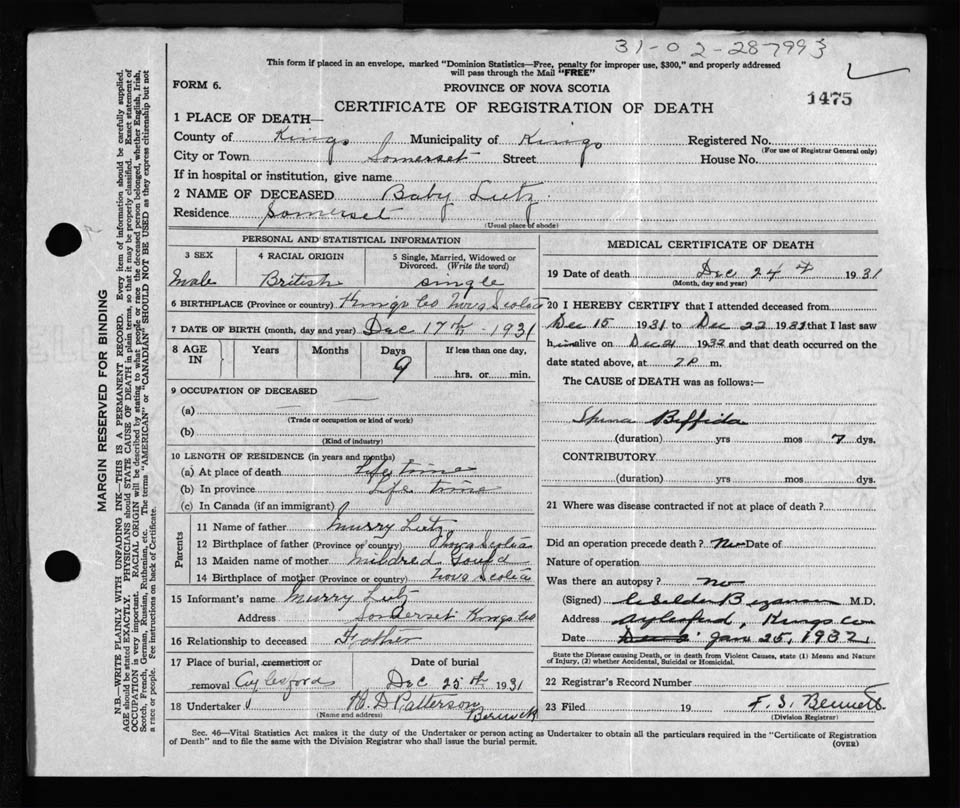 31-02-287993
This form if placed in an envelope, marked "Dominion Statistics—Free, penalty for improper use, $300," and properly addressed
will pass through the Mail "FREE"
FORM 6.
PROVINCE OF NOVA SCOTIA
1475
CERTIFICATE OF REGISTRATION OF DEATH
1 PLACE OF DEATH—
County of Kings Municipality of Kings Registered No.
(For use of Registrar General only)
City or Town Somerset Street House No.
If in hospital or institution, give name
2 NAME OF DECEASED Baby Lutz
Residence Somerset
(Usual place of abode)
PERSONAL AND STATISTICAL INFORMATION
3 SEX 4 RACIAL ORIGIN 5 Single, Married, Widowed or
Divorced. (Write the word)
Male British single
6 BIRTHPLACE (Province or country) Kings Co Nova Scotia
7 DATE OF BIRTH (month, day and year) Dec 17th - 1931
8 AGE IN Years Months Days If less than one day,
9 hrs. or min.
9 OCCUPATION OF DECEASED
(a)
(Trade or occupation or kind of work)
(b)
(Kind of industry)
10 LENGTH OF RESIDENCE (in years and months)
(a) At place of death Life time
(b) In province Life time
(c) In Canada (if an immigrant)
Parents
11 Name of father Murry Lutz
12 Birthplace of father (Province or country) Nova Scotia
13 Maiden name of mother Mildred Gould
14 Birthplace of mother (Province or country) Nova Scotia
15 Informant's name Murry Lutz
Address Somerset Kings Co
16 Relationship to deceased Father
17 Place of burial, cremation or Date of burial
removal Aylesford Dec 25th 1931
18 Undertaker H. D Patterson
(Name and address) Berwick
MEDICAL CERTIFICATE OF DEATH
19 Date of death Dec 24th 1931
(Month, day and year)
20 I HEREBY CERTIFY that I attended deceased from
Dec 15 1931 to Dec 22 1931 that I last saw
him alive on Dec 21 1932 and that death occurred on the
date stated above, at 7 P m.
The CAUSE of DEATH was as follows:—
Spina Biffida
(duration) yrs mos 7 dys.
CONTRIBUTORY
(duration) yrs mos dys.
21 Where was disease contracted if not at place of death?
Did an operation precede death? No Date of
Nature of operation
Was there an autopsy? no
(Signed) M.D.
Address Aylesford, Kings Com
Date Jan 25, 1932
State the Disease causing Death, or in death from Violent Causes, state (1) Means and Nature
of Injury, (2) whether Accidental, Suicidal or Homicidal.
22 Registrar's Record Number
23 Filed 19 F. S. Bennett
(Division Registrar)
Sec. 46—Vital Statistics Act makes it the duty of the Undertaker or person acting as Undertaker to obtain all the particulars required in the "Certificate of Registration
of Death" and to file the same with the Division Registrar who shall issue the burial permit.
(OVER)
MARGIN RESERVED FOR BINDING
N.B.—WRITE PLAINLY WITH UNFADING INK—THIS IS A PERMANENT RECORD. Every item of information should be carefully supplied.
AGE should be stated EXACTLY. PHYSICIANS should STATE CAUSE OF DEATH in plain terms, so that it may be properly classified. Exact statement of
OCCUPATION is very important. RACIAL ORIGIN will be described by stating to what people or race the deceased person belonged, whether English, Irish,
Scotch, French, German, Russian, Ruthenian, etc. The terms "AMERICAN" or "CANADIAN" SHOULD NOT BE USED as they express citizenship but not
a race or people. See instructions on back of Certificate.